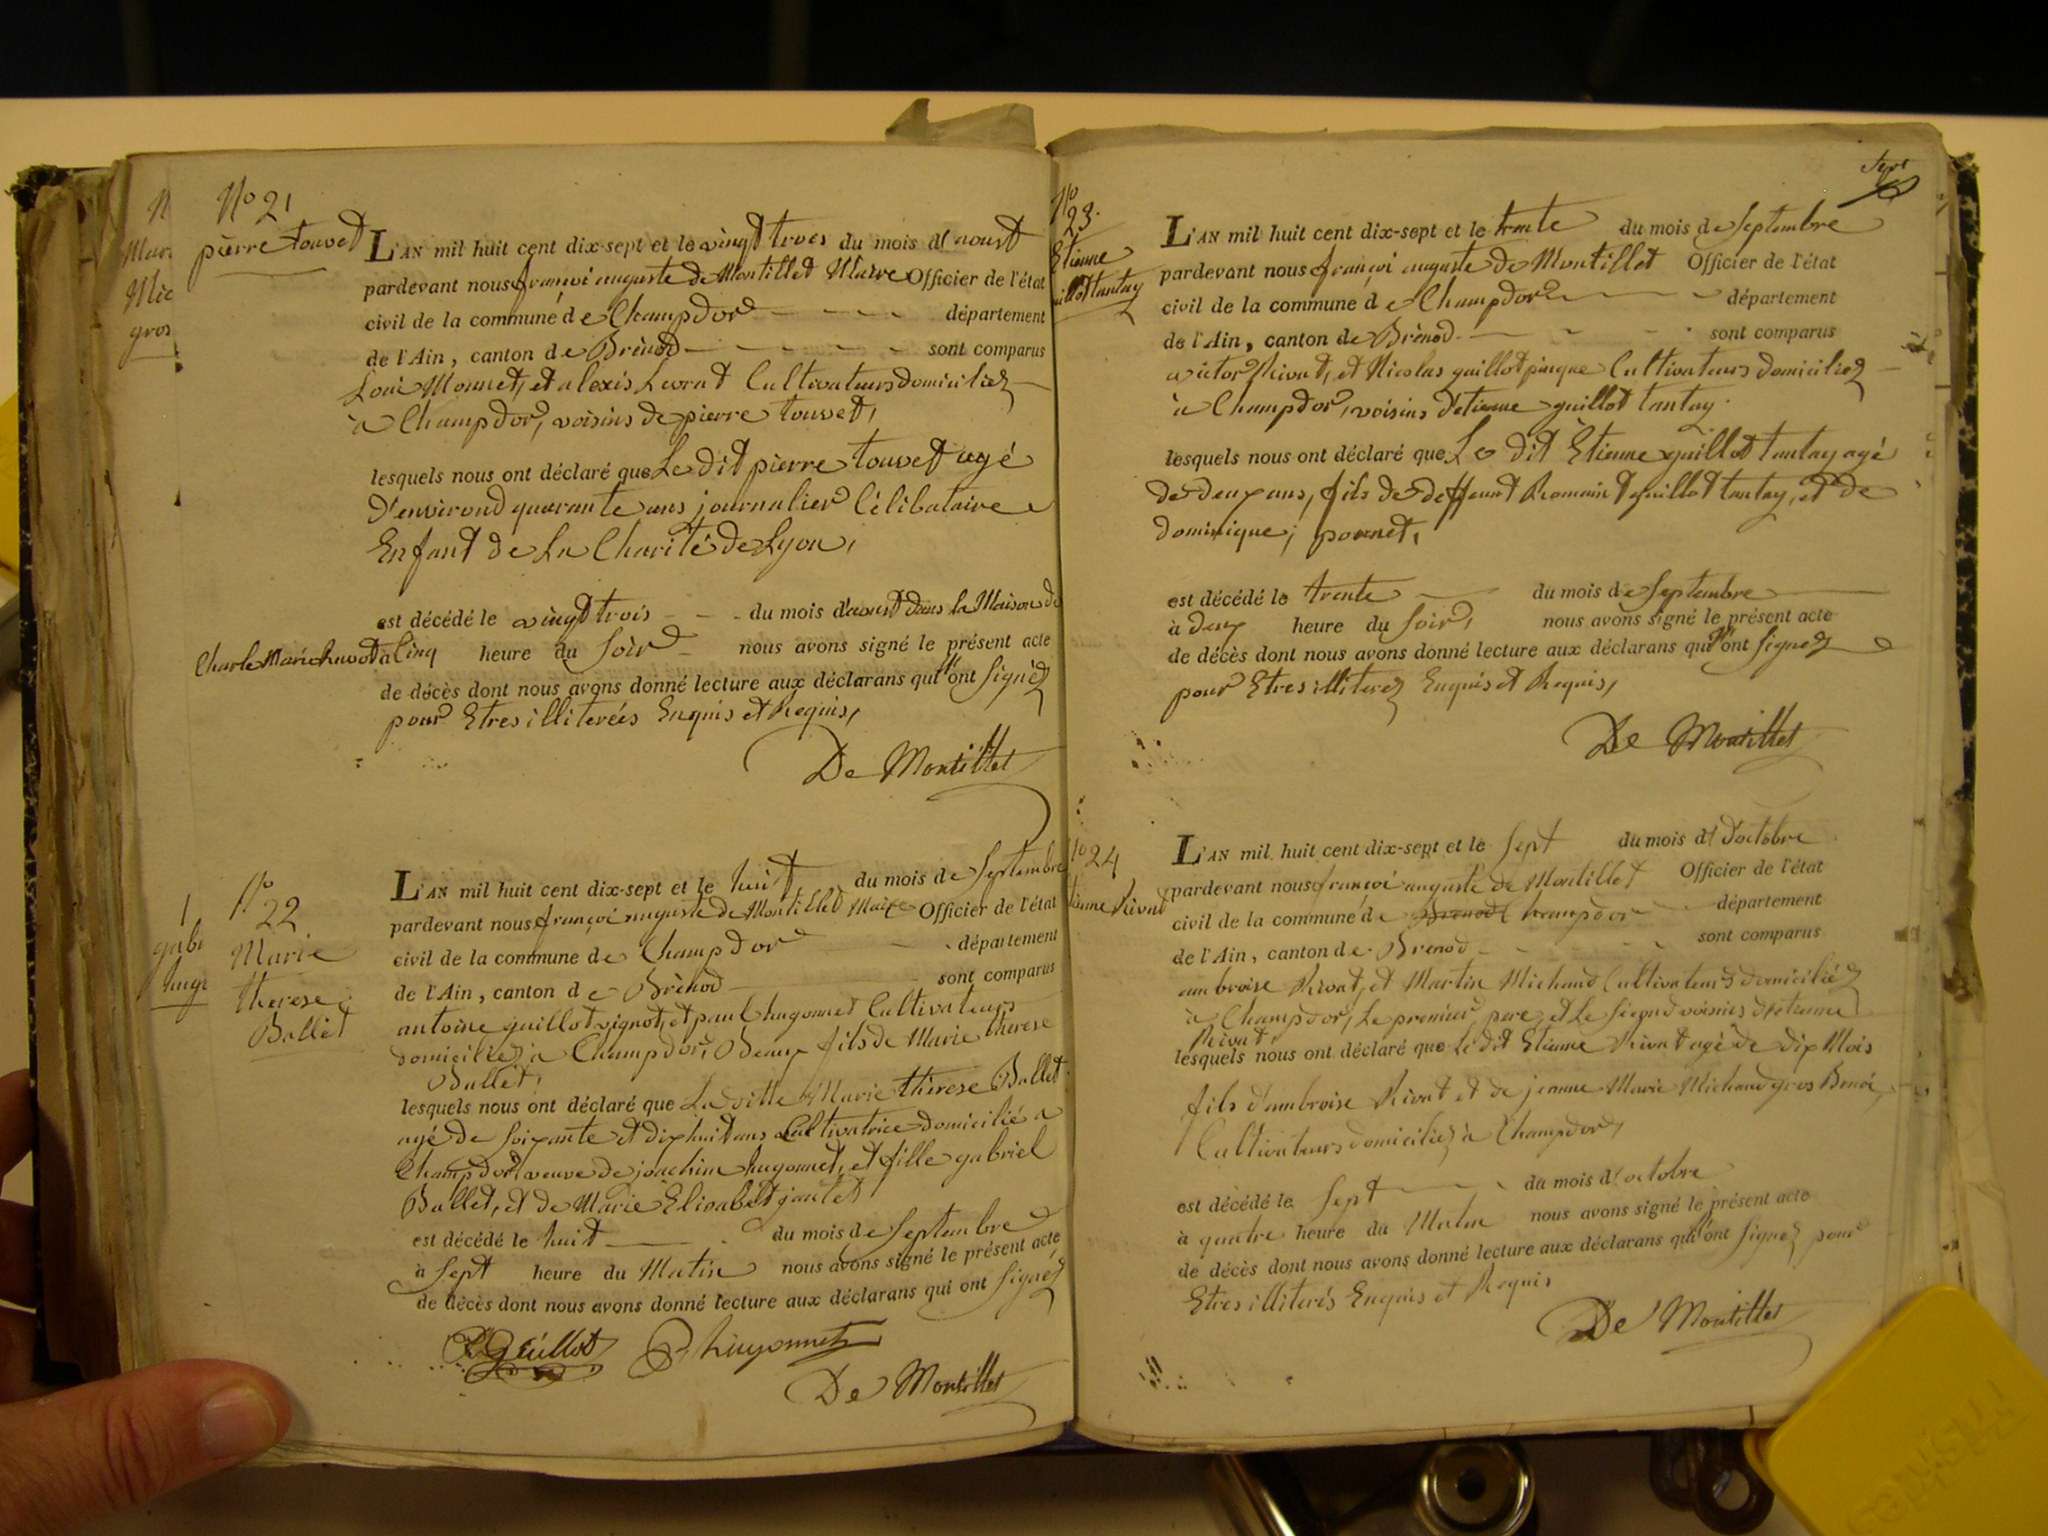 No 21
pierre touvet
L'AN mil huit cent dix-sept et le vingt trois du mois d'aoust
pardevant nous françoi auguste de Montillet Maire Officier de l'état
civil de la commune de Champdor département
de l'Ain, canton de Brénod sont comparus
Loui Monnet, et alexis Levrat Cultivateurs domiciliez
à Champdor, voisins de pierre touvet,
lesquels nous ont déclaré que Le dit pierre touvet agé
d'environd quarante ans journalier Célibataire
Enfant de La Charité de Lyon,
est décédé le vingt trois du mois d'aoust dans la Maison de
Charle Marie à Cinq heure du Soir nous avons signé le présent acte
de décès dont nous avons donné lecture aux déclarans qui n'ont Signéz
pour Etres illiterées Enquis et Requis,
De Montillet
No 22
Marie
therese
Ballet
L'AN mil huit cent dix-sept et le huit du mois de Septembre
pardevant nous françoi auguste de Montillet Maire Officier de l'état
civil de la commune de Champdor département
de l'Ain, canton de Brénod sont comparus
antoine guillot vignot, et paul hugonnet Cultivateurs
domiciliez à Champdor, beaux fils de Marie therese
Ballet,
lesquels nous ont déclaré que La ditte Marie therese Ballet
agé de Soixante et dix huit ans Cultivatrice domicilié a
Champdor veuve de joachim hugonnet, et fille gabriel
Ballet, et de Marie Elisabet jantet
est décédé le huit du mois de Septembre
à Sept heure du Matin nous avons signé le présent acte
de décès dont nous avons donné lecture aux déclarans qui ont Signéz
Guillot P, hugonnet
De Montillet
Sept
No 23.
Etienne
guillot tantay
L'AN mil huit cent dix-sept et le trente du mois de Septembre
pardevant nous françoi auguste de Montillet Officier de l'état
civil de la commune de Champdor département
de l'Ain, canton de Brénod sont comparus
victor Rivat, et Nicolas guillot pinque Cultivateurs domiciliez
à Champdor, voisins d'etienne guillot tantay.
lesquels nous ont déclaré que Le dit Etienne guillot tantay agé
de deux ans, fils de deffeunt Romain guillot tantay, et de
dominique, ponnet,
est décédé le trente du mois de Septembre
à deux heure du Soir, nous avons signé le présent acte
de décès dont nous avons donné lecture aux déclarans qui n'ont Signez
pour Etres illiterez Enquis et Requis,
De Montillet
No 24
Etienne Rivat
L'AN mil huit cent dix-sept et le Sept du mois d'octobre
pardevant nous françoi auguste de Montillet Officier de l'état
civil de la commune de Brenod Champdor département
de l'Ain, canton de Brenod sont comparus
ambroise Rivat, et Martin Michaud Cultivateurs domiciliéz
à Champdor, Le premier pere, et Le Segond voisins d'etienne
Rivat
lesquels nous ont déclaré que Le dit Etienne Rivat agé de dix Mois
fils d'ambroise Rivat et de jeanne Marie Michaud gros Benoi,
Cultivateurs domiciliez à Champdor,
est décédé le Sept du mois d'octobre
à quatre heure du Matin nous avons signé le présent acte
de décès dont nous avons donné lecture aux déclarans qui n'ont Signez pour
Etres illiterés Enquis et Requis
De Montillet